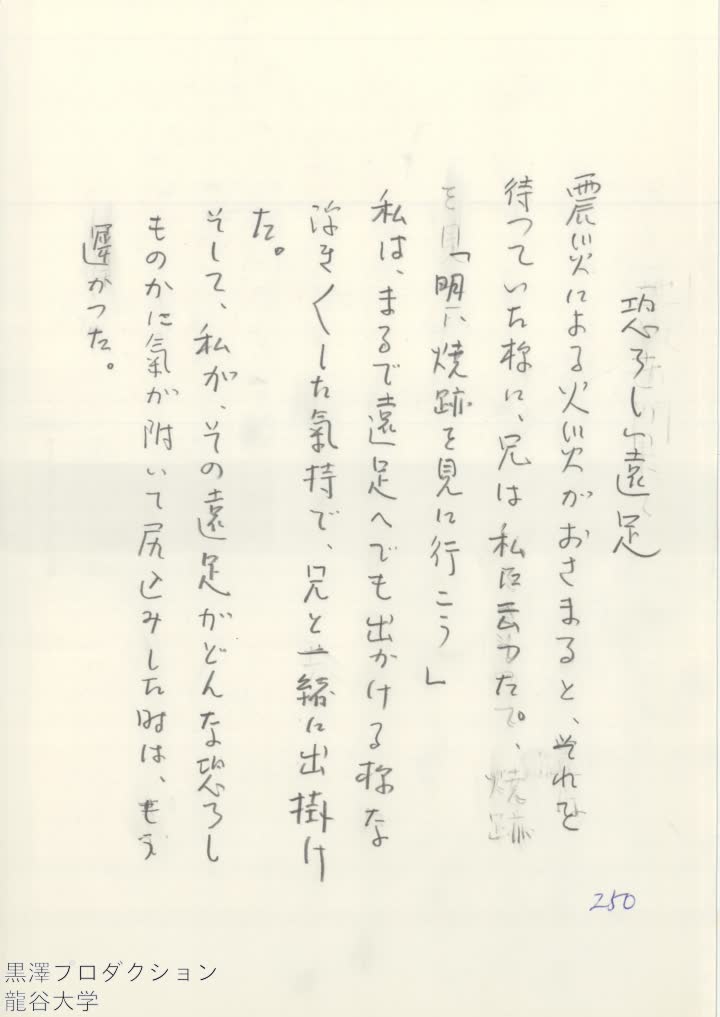 恐ろしい遠足
震災による火災がおさまると、それを
待つていた様に、兄は私に云つた。、焼跡
を見「明、焼跡を見に行こう」
私は、まるで遠足へでも出かける様な
浮き〱した氣持で、兄と一緒に出掛け
た。
そして、私が、その遠足がどんな恐ろし
ものかに氣が附いて尻込みした时は、もう
遅かつた。
250
黒澤プロダクション
龍谷大学